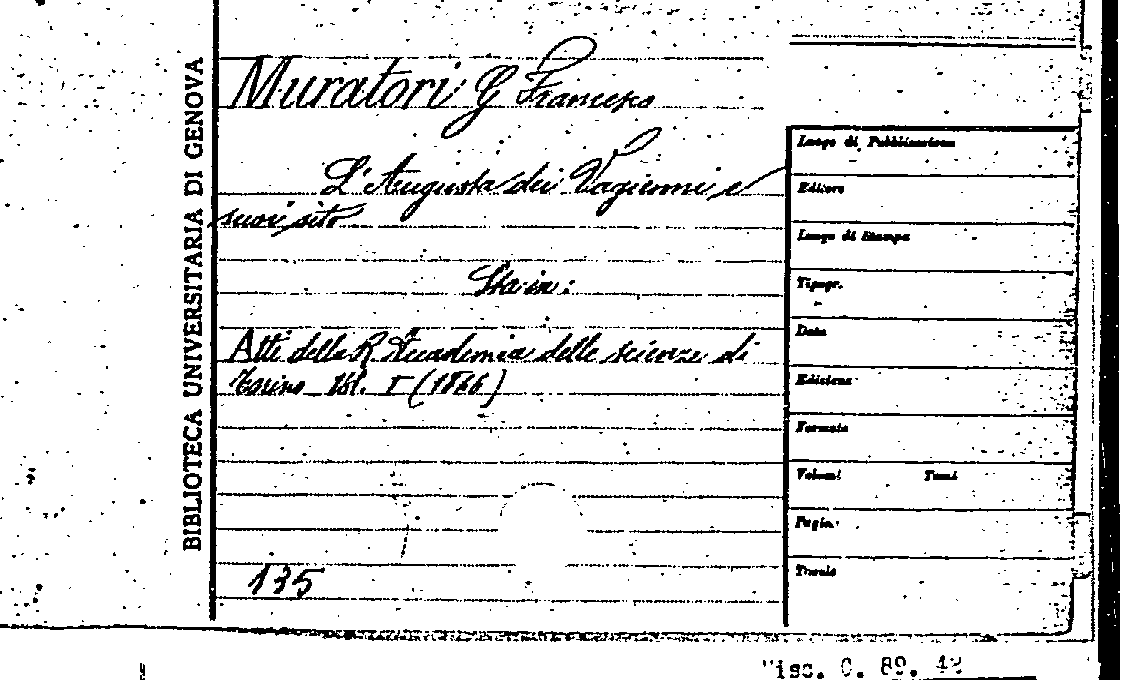 BIBLIOTECA UNIVERSITARIA DI GENOVA
Muratori G Francesco
L'Augusta dei Vagienni e
suoi sito
Sta in:
Atti della R Accademia delle scienze di
Torino Vol. I (1866)
135
Luogo di Pubblicazione
Editore
Luogo di Stampa
Tipogr.
Data
Edizione
Formato
Volumi Tomi
Pagin.
Tavole
Misc. C. 89. 42